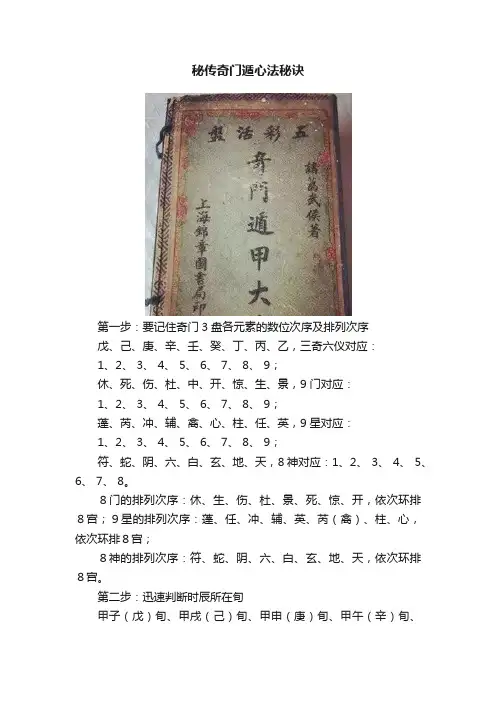 秘传奇门遁心法秘诀
五彩活盤
諸葛武侯著
奇門遁甲大
上海錦章圖書局印
第一步：要记住奇门3盘各元素的数位次序及排列次序
戊、己、庚、辛、壬、癸、丁、丙、乙，三奇六仪对应：
1、2、 3、 4、 5、 6、 7、 8、 9；
休、死、伤、杜、中、开、惊、生、景，9门对应：
1、2、 3、 4、 5、 6、 7、 8、 9；
蓬、芮、冲、辅、禽、心、柱、任、英，9星对应：
1、2、 3、 4、 5、 6、 7、 8、 9；
符、蛇、阴、六、白、玄、地、天，8神对应：1、2、 3、 4、 5、
6、 7、 8。
８门的排列次序：休、生、伤、杜、景、死、惊、开，依次环排
８宫；９星的排列次序：蓬、任、冲、辅、英、芮（禽）、柱、心，
依次环排８宫；
８神的排列次序：符、蛇、阴、六、白、玄、地、天，依次环排
８宫。
第二步：迅速判断时辰所在旬
甲子（戊）旬、甲戌（己）旬、甲申（庚）旬、甲午（辛）旬、